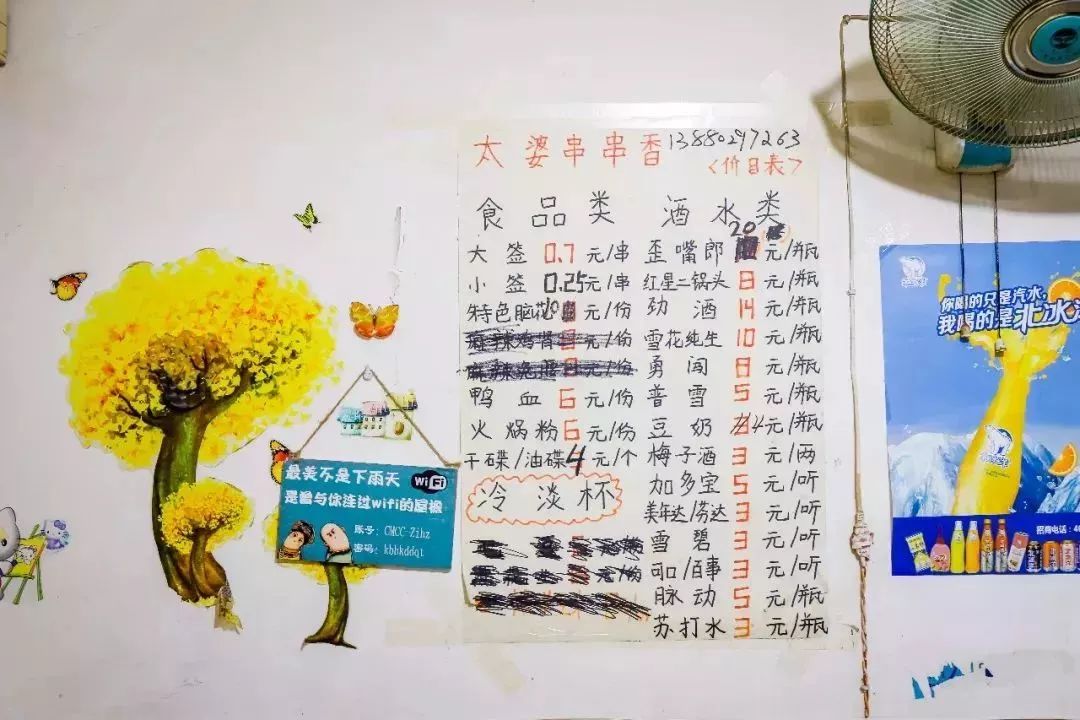 太婆串串香 13880297263
〈价目表〉
食品类
大签 0.7 元/串
小签 0.25元/串
特色脑花 元/份
鸭血 6 元/份
火锅粉 6 元/份
干碟/油碟 4 元/个
冷淡杯
酒水类
歪嘴郎 20 元/瓶
红星二锅头 8 元/瓶
劲酒 14 元/瓶
雪花纯生 10 元/瓶
勇闯 8 元/瓶
普雪 5 元/瓶
豆奶 4元/瓶
梅子酒 3 元/两
加多宝 5 元/听
美年达/芬达 3 元/听
雪碧 3 元/听
可口/百事 3 元/听
脉动 5 元/瓶
苏打水 3 元/瓶
最美不是下雨天 WiFi
是曾与你连过wifi的屋檐
账号: CMCC-Zihz
密码: kbhkddq1
你喝的只是汽水,
我喝的是北冰
招商电话: